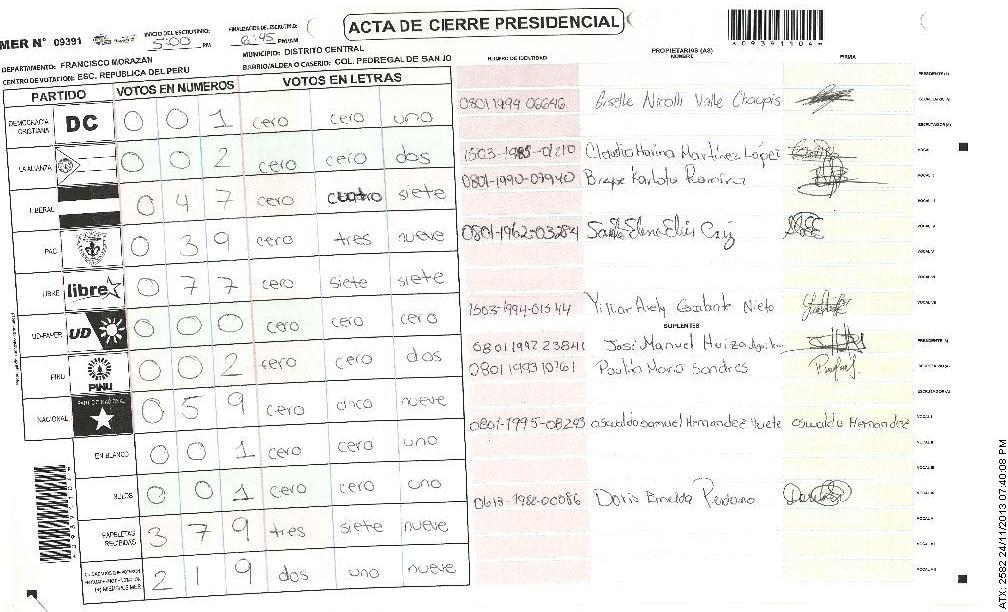 ACTA DE CIERRE PRESIDENCIAL
MER N° 09391
INICIO DEL ESCRUTINIO: 5:00 PM
FINALIZACIÓN DEL ESCRUTINIO: 6:45 PM/AM
*09391104*
DEPARTAMENTO: FRANCISCO MORAZAN
MUNICIPIO: DISTRITO CENTRAL
CENTRO DE VOTACION: ESC. REPUBLICA DEL PERU
BARRIO/ALDEA O CASERIO: COL. PEDREGAL DE SAN JO
PARTIDO VOTOS EN NUMEROS VOTOS EN LETRAS
DEMOCRACIA CRISTIANA DC 0 0 1 cero cero uno
LA ALIANZA 0 0 2 cero cero dos
LIBERAL 0 4 7 cero cuatro siete
PAC 0 3 9 cero tres nueve
LIBRE libre 0 7 7 cero siete siete
UD-FAPER UD 0 0 0 cero cero cero
PINU PINU 0 0 2 cero cero dos
NACIONAL PARTIDO NACIONAL 0 5 9 cero cinco nueve
EN BLANCO 0 0 1 cero cero uno
NULOS 0 0 1 cero cero uno
PAPELETAS RECIBIDAS 3 7 9 tres siete nueve
2 1 9 dos uno nueve
NUMERO DE IDENTIDAD PROPIETARIOS (AS) NOMBRE FIRMA
PRESIDENTE (A)
0801 1994 06646 Giselle Nicolli Valle Chaupis
SECRETARIO (A)
ESCRUTADOR (A)
1503-1985-01210 Claudia Marina Martínez López
VOCAL I
0801-1990-07940 Karlota Ramírez
VOCAL II
VOCAL III
0801-1962-03284
VOCAL IV
VOCAL V
VOCAL VI
1503-1994-01544 Escalante Nieto
VOCAL VII
SUPLENTES
0801 1992 23841 José Manuel
PRESIDENTE (A)
0801 1993 10761 Sandres
SECRETARIO (A)
ESCRUTADOR (A)
0801-1995-08293 oswaldo samuel Hernandez Huete oswaldo Hernandez
VOCAL I
VOCAL II
VOCAL III
0613-1982-00086 Doris Perdomo
VOCAL IV
VOCAL V
VOCAL VI
VOCAL VII
ATX: 2582 24/11/2013 07:40:08 PM